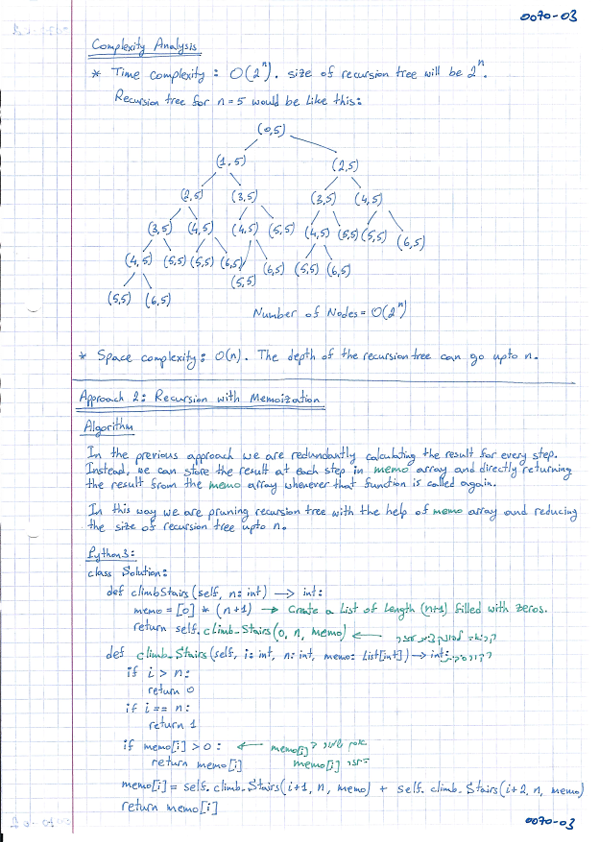 0070-03
Complexity Analysis
* Time complexity: O(2^n). size of recursion tree will be 2^n.
Recursion tree for n=5 would be like this:
(0,5)
(1,5) (2,5)
(2,5) (3,5) (3,5) (4,5)
(3,5) (4,5) (4,5) (5,5) (4,5) (5,5) (5,5) (6,5)
(4,5) (5,5) (5,5) (6,5) (5,5) (6,5) (5,5) (6,5)
(5,5) (6,5)
Number of Nodes = O(2^n)
* Space complexity: O(n). The depth of the recursion tree can go upto n.
Approach 2: Recursion with Memoization
Algorithm
In the previous approach we are redundantly calculating the result for every step.
Instead, we can store the result at each step in memo array and directly returning
the result from the memo array whenever that function is called again.
In this way we are pruning recursion tree with the help of memo array and reducing
the size of recursion tree upto n.
Python3:
class Solution:
def climbStairs(self, n: int) -> int:
memo = [0] * (n+1) → Create a List of Length (n+1) filled with zeros.
return self.climb_Stairs(0, n, memo) ←
def climb_Stairs(self, i: int, n: int, memo: List[int]) -> int:
if i > n:
return 0
if i == n:
return 1
if memo[i] > 0: ← memo[i]
return memo[i] memo[i]
memo[i] = self.climb_Stairs(i+1, n, memo) + self.climb_Stairs(i+2, n, memo)
return memo[i]
0070-03